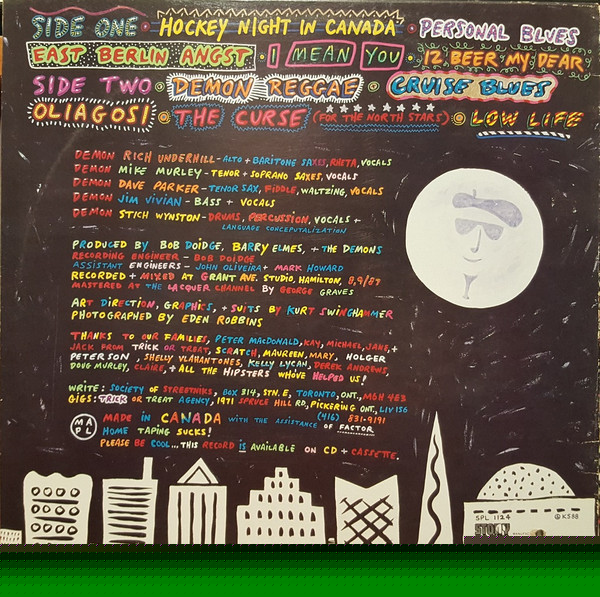 SIDE ONE • HOCKEY NIGHT IN CANADA • PERSONAL BLUES
EAST BERLIN ANGST • I MEAN YOU • 12 BEER MY DEAR
SIDE TWO • DEMON REGGAE • CRUISE BLUES
OLIAGOSI • THE CURSE (FOR THE NORTH STARS) • LOW LIFE
DEMON RICH UNDERHILL - ALTO + BARITONE SAXES, RHETA, VOCALS
DEMON MIKE MURLEY - TENOR + SOPRANO SAXES, VOCALS
DEMON DAVE PARKER - TENOR SAX, FIDDLE, WALTZING, VOCALS
DEMON JIM VIVIAN - BASS + VOCALS
DEMON STICH WYNSTON - DRUMS, PERCUSSION, VOCALS +
LANGUAGE CONCEPTUALIZATION
PRODUCED BY BOB DOIDGE, BARRY ELMES, + THE DEMONS
RECORDING ENGINEER - BOB DOIDGE
ASSISTANT ENGINEERS - JOHN OLIVEIRA + MARK HOWARD
RECORDED + MIXED AT GRANT AVE. STUDIO, HAMILTON, 8,9/87
MASTERED AT THE LACQUER CHANNEL BY GEORGE GRAVES
ART DIRECTION, GRAPHICS, + SUITS BY KURT SWINGHAMMER
PHOTOGRAPHED BY EDEN ROBBINS
THANKS TO OUR FAMILIES, PETER MACDONALD, KAY, MICHAEL, JANE, +
JACK FROM TRICK OR TREAT, SCRATCH, MAUREEN, MARY, HOLGER
PETERSON, SHELLY VLAHANTONES, KELLY LYCAN, DEREK ANDREWS,
DOUG MURLEY, CLAIRE, + ALL THE HIPSTERS WHOVE HELPED US!
WRITE: SOCIETY OF STREETNIKS, BOX 314, STN. E, TORONTO, ONT., M6H 4E3
GIGS: TRICK OR TREAT AGENCY, 1971 SPRUCE HILL RD., PICKERING ONT., L1V 1S6
(416) 831-9191
MAPL MADE IN CANADA WITH THE ASSISTANCE OF FACTOR
HOME TAPING SUCKS!
PLEASE BE COOL... THIS RECORD IS AVAILABLE ON CD + CASSETTE.
SPL 1124 ℗ KS 88
STONY